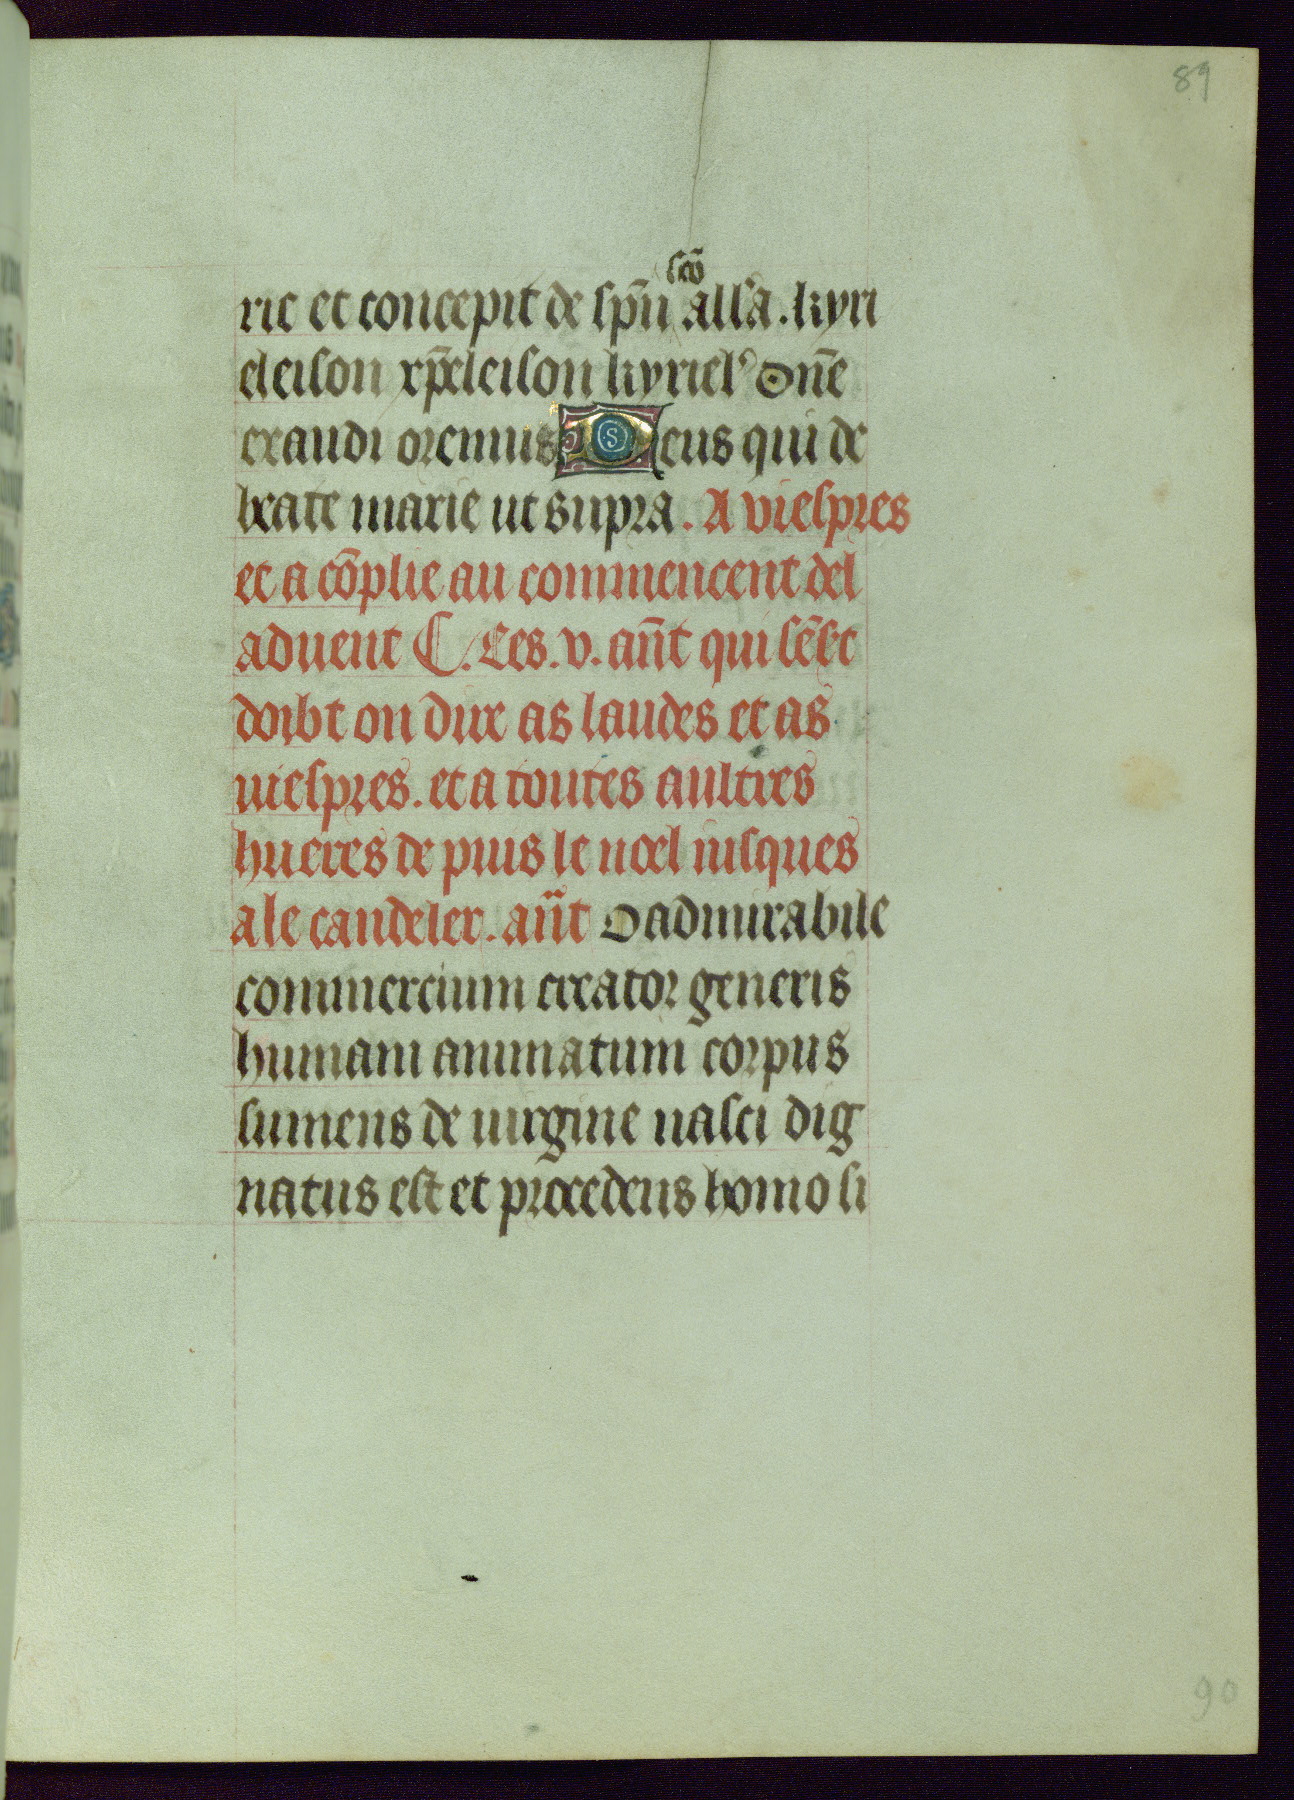 89
scō
rie et concepit de spū alla. kyri
eleison xp̄eleison kyriel' Dn̄e
exaudi oremus Deus qui de
beate marie ut supra. A viespres
et a cōplie au commencent del
advent C. Les .v. an̄t qui
doibt on dire as laudes et as
viespres. et a toutes aultres
hueres de puis le noel iusques
a le candeler. an̄t O admirabile
commercium creator generis
humani animatum corpus
sumens de uirgine nasci dig
natus est et procedens homo si
90